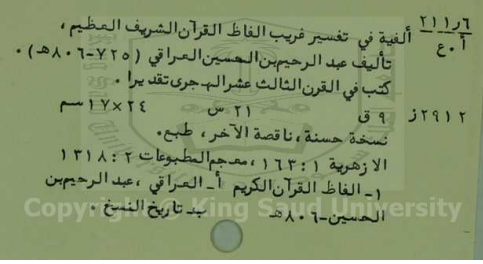 ٢١١٫٦
أ ٠ ع
ألفية في تفسير غريب الفاظ القرآن الشريف العظيم ،
تأليف عبد الرحيم بن الحسين العراقي (٧٢٥-٨٠٦هـ) ٠
كتب في القرن الثالث عشر الهجرى تقديرا ٠
٢٩١٢ ز ٩ ق ٢١ س ٢٤×١٧ سم
نسخة حسنة ، ناقصة الآخر ، طبع٠
الازهرية ١ : ١٦٣ ، معجم المطبوعات ٢ : ١٣١٨
١- الفاظ القرآن الكريم أ- العراقي ، عبد الرحيم بن
الحسين -٨٠٦هـ ب- تاريخ النسخ ٠
Copyright © King Saud University